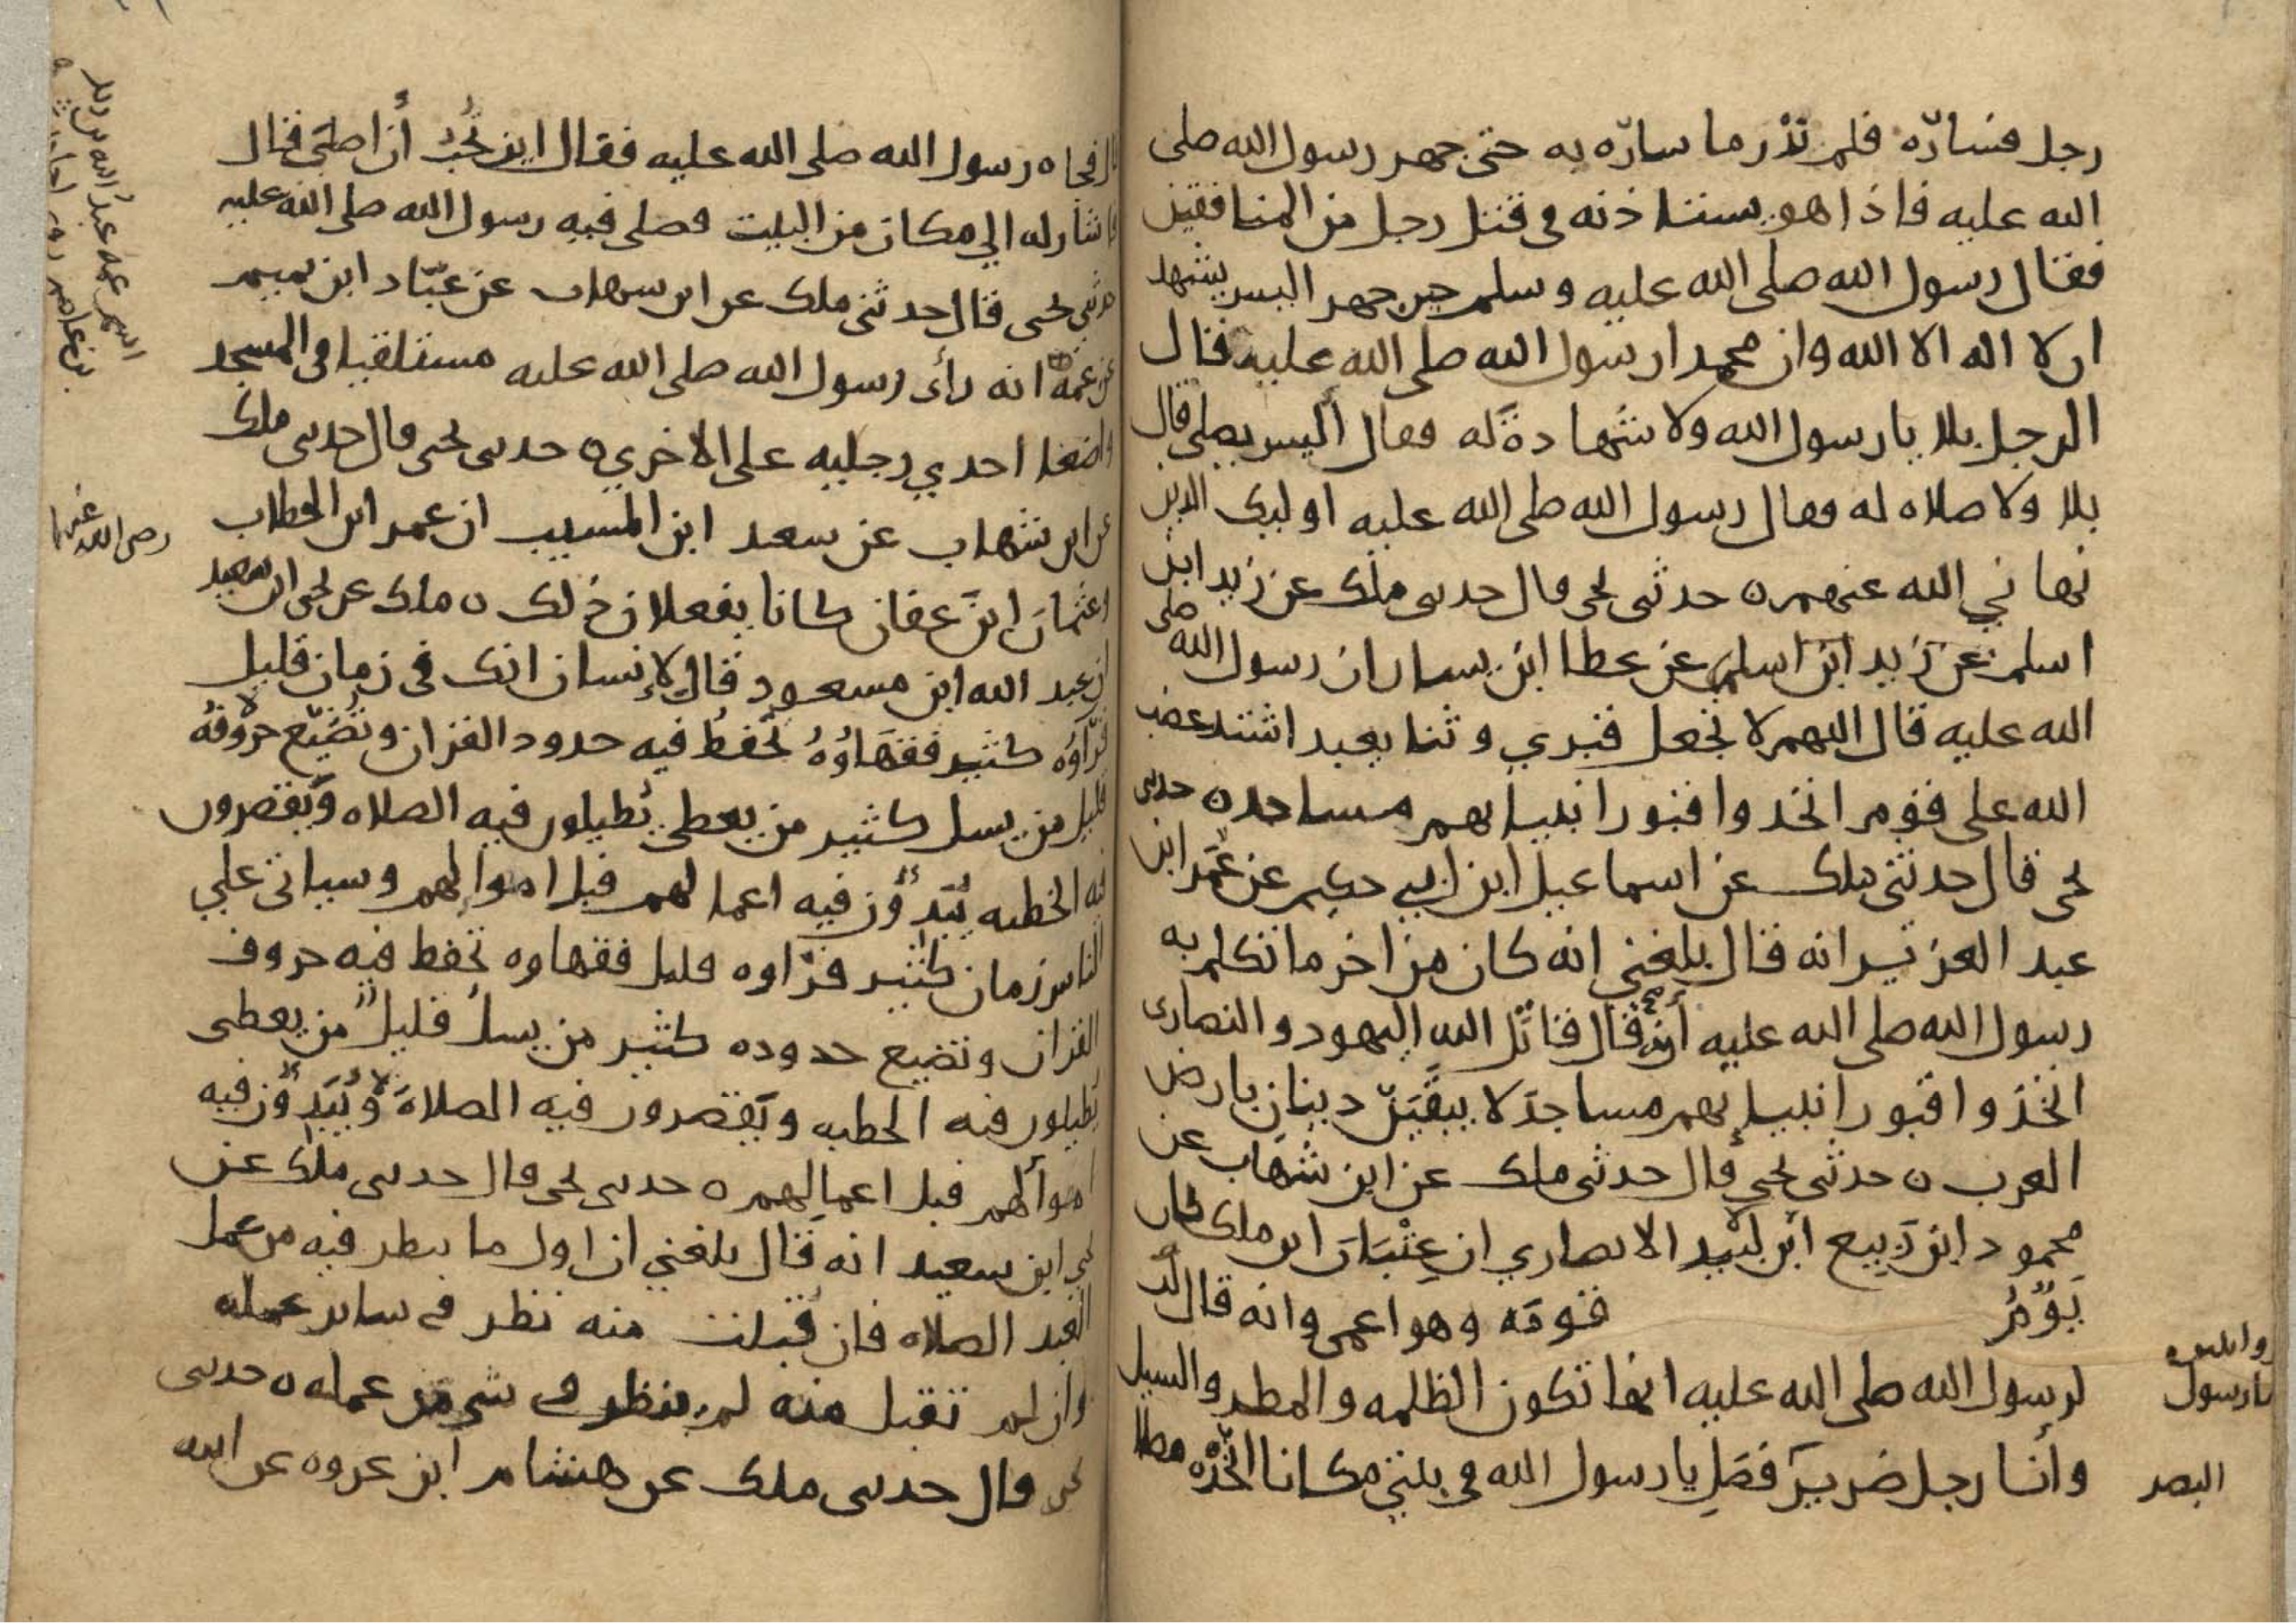 رجل فسارّه فلم نَدْر ما سارّه به حتى جهر رسول الله صلى
الله عليه فاذا هو يستاذنه في قتل رجل من المنافقين
فقال رسول الله صلى الله عليه وسلم حين جهر اليس يشهد
ان لا اله الا الله وان محمدا رسول الله صلى الله عليه قال
الرجل بلا يا رسول الله ولا شهادةَ له فقال أليس يصلي قال
بلا ولا صلاه له فقال رسول الله صلى الله عليه اوليك الذين
نهاني الله عنهم ه حدثنى يحى قال حدثنى ملك عن زيد ابن
اسلم عن زيد ابن اسلم عن عطا ابن يسار ان رسول الله صلى
الله عليه قال اللهم لا تجعل قبري وثنا يعبد اشتد غضب
الله على قوم اتخدوا قبور انبيايهم مساجد ه حدثنى
يحى قال حدثنى ملك عن اسماعيل ابن ابي حكيم عن عُمَر ابن
عبد العزيز انه قال بلغني انه كان من اخر ما تكلم به
رسول الله صلى الله عليه أن قال قاتَل الله اليهود والنصارى
اتخذوا قبور انبيايهم مساجدَ لا يبقَيَنّ دينان بارض
العرب ه حدثنى يحي قال حدثنى ملك عن ابن شهَاب عن
محمود ابن رَبيع ابن لَبيد الانصاري ان عِتْبَانَ ابن ملك كان
يَؤُمُّ قومَه وهو اعمى وانه قال
لرسول الله صلى الله عليه انها تكون الظلمه والمطر والسيل
وأنا رجل ضرير فصَلِ يا رسول الله في بيتي مكانا اتّخذْه مصلا
يا رسول
البصر
قال فجاه رسول الله صلى الله عليه فقال اين تُحِبُّ أن اصلي قال
فاشار له الي مكان من البيت فصلى فيه رسول الله صلى الله عليه
حدثنى يحى قال حدثنى ملك عن ابن شهاب عن عبّاد ابن تميم
عن عمه انه رأى رسول الله صلى الله عليه مستلقيا في المسجد
واضعا احدي رجليه على الاخري ه حدثنى يحى قال حدثنى ملك
عن ابن شهاب عن سعد ابن المسيب ان عمر ابن الخطاب
وعثمانَ ابنَ عفان كانا يفعلان ذلك ه ملك عن يحيى ابن سعيد
ان عبد الله ابن مسعود قال لإنسان انك في زمان قليل
قُرّاؤه كثير فقهَاؤُهُ تُحفظُ فيه حدود القران وتُضَيّع حروفُهُ
قليل من يسل كثير من يعطي يُطيلون فيه الصلاه ويَقصرون
فيه الخطبه يُبَدّؤن فيه اعمالهم قبل اموالهم وسياتى علي
الناس زمان كثير قرّاوه قليل فقهاوه تُحفظ فيه حروف
القران وتضيع حدوده كثير من يسلُ قليلٌ من يعطى
يُطيلون فيه الخطبه ويَقصرون فيه الصلاةَ ويُبَدّؤن فيه
اموالهم قبل اعمالهم ه حدثنى يحى قال حدثنى ملك عن
يحي ابن سعيد انه قال بلغني ان اول ما ينظر فيه من عمل
العبد الصلاه فان قُبلت منه نظر في ساير عمله
وان لم تقبل منه لم ينظر في شي من عمله ه حدثنى
يحى قال حدثنى ملك عن هشام ابن عروه عن ابيه
اسم عمه عبدُ الله بن زيد
بن عاصم
رضى الله عنهما